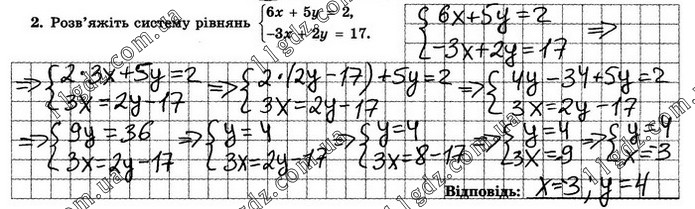 2. Розв'яжіть систему рівнянь { 6x + 5y = 2, −3x + 2y = 17. { 6x+5y=2 −3x+2y=17 ⇒
⇒ { 2·3x+5y=2 3x=2y−17 ⇒ { 2·(2y−17)+5y=2 3x=2y−17 ⇒ { 4y−34+5y=2 3x=2y−17
⇒ { 9y=36 3x=2y−17 ⇒ { y=4 3x=2y−17 ⇒ { y=4 3x=8−17 ⇒ { y=4 3x=−9 ⇒ { y=4 x=−3
Відповідь: x=3; y=4
11gdz.com.ua